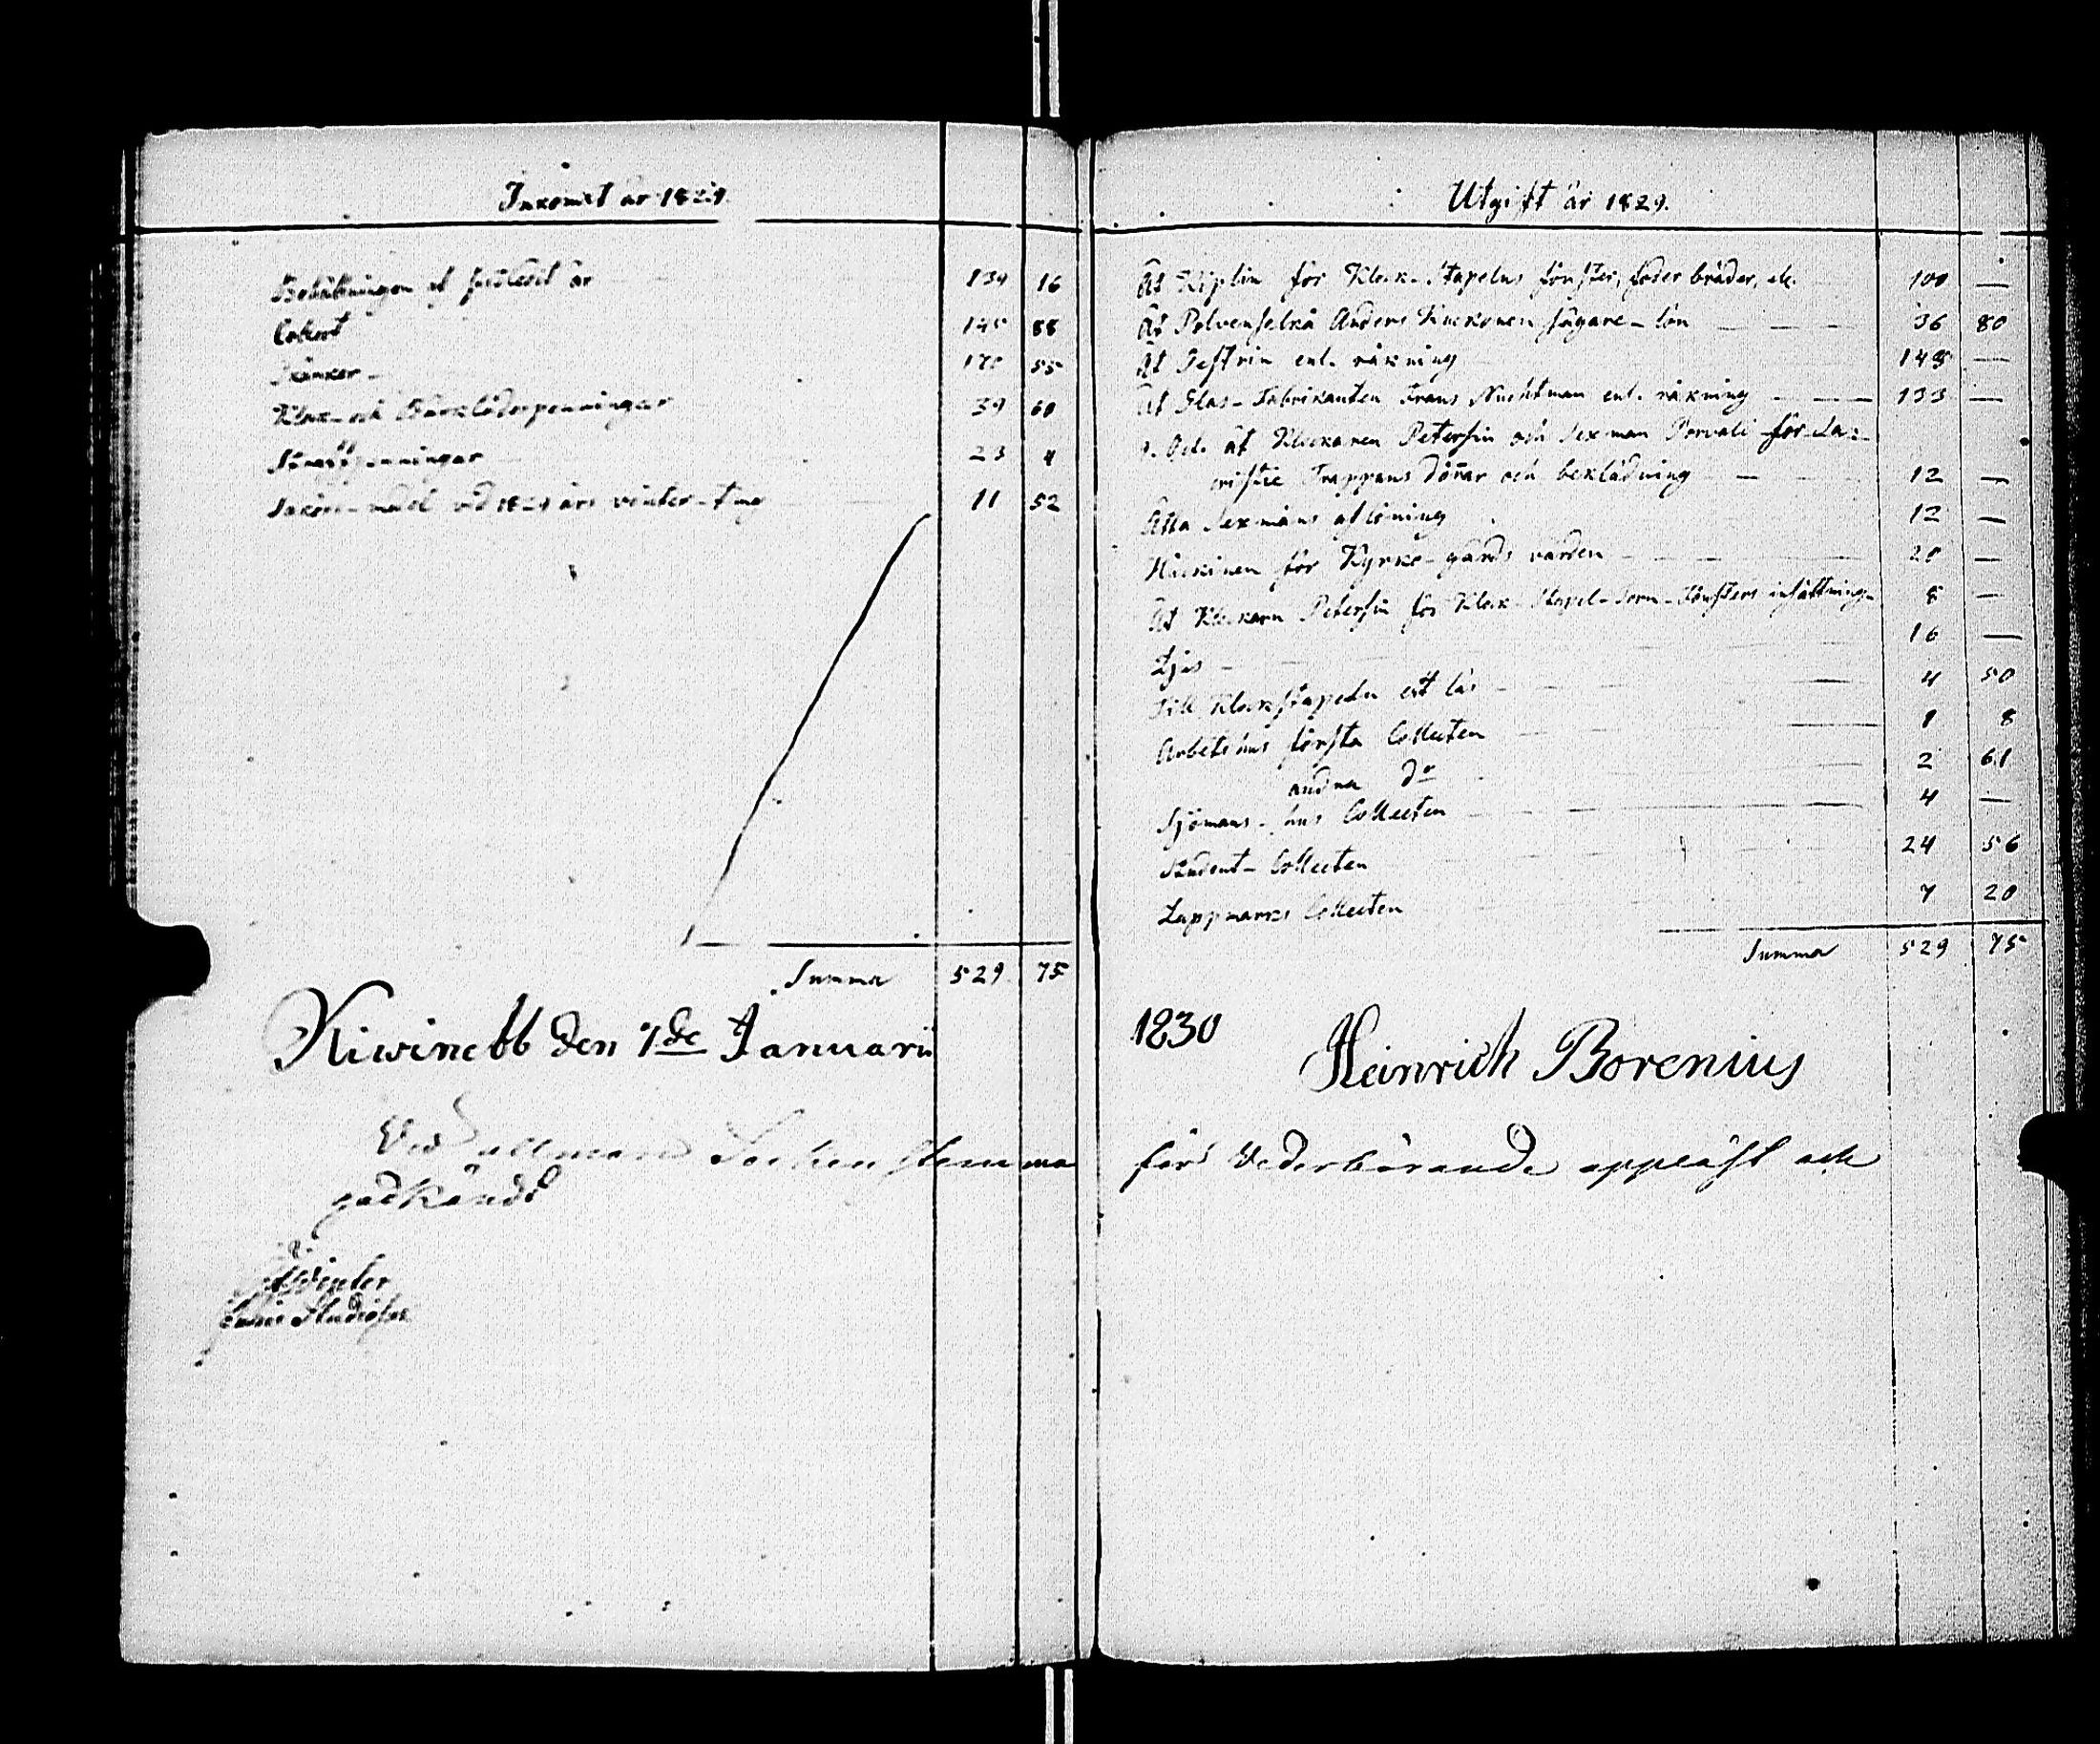 Inkomst år 1829.
Behållningen af förledit år 139 16
Collect 145 88
Skänker 170 55
Klock- och Bårklädespenningar 39 60
penningar 23 4
vid 1829 års vinter-ting 11 52
Summa 529 75
Kiwinebb den 7de Januarii
Vid allmän Sockenstemma
godkändt
Utgift år 1829.
Åt Kiplin för Klock-Stapelns fönster, foder bräder, etc. 100 —
Åt Polvenselkä Anders Kuckonen sågare-lön 36 80
Åt Testrin enl. räkning 145 —
Åt Glas-Fabrikanten Frans Nachtman enl. räkning 133 —
åt Klockaren Petersin och Sexman Porvali för Sa-
cristie Trappans dörrar och beklädning 12 —
Åtta Sexmäns aflöning 12 —
Häckinen för Kyrko-gårds vården 20 —
Åt Klockarn Petersin för Klock-Stapel-Torn-Fönsters insättning 8 —
Ljus 16 —
Till Klockstapeln ett lås 4 50
Arbetshus första Collecten 1 8
andra do 2 61
Sjömans-hus Collecten 4 —
Student-Collecten 24 56
Lappmarks Collecten 7 20
Summa 529 75
1830
Heinrich Borenius
för Vederbörande uppläst och